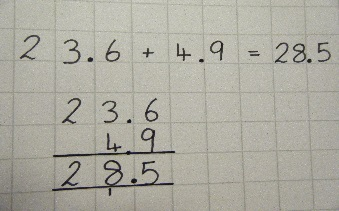 23.6 + 4.9 = 28.5
23.6
4.9
28.5
1